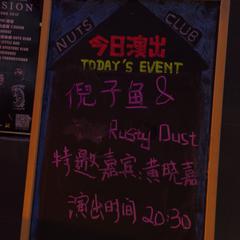 NUTS CLUB
今日演出
TODAY'S EVENT
倪子鱼 &
Rusty Dust
特邀嘉宾:黄晓嘉
演出时间 20:30